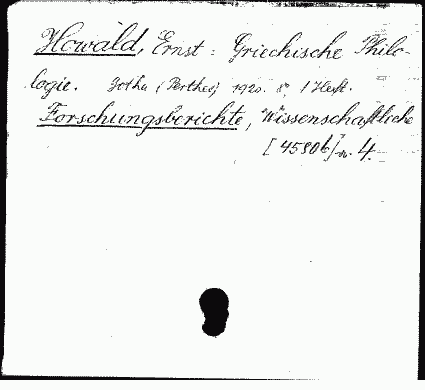 Howald, Ernst: Griechische Philo-
logie. Gotha (Perthes) 1920. 8°. 1 Heft.
Forschungsberichte, Wissenschaftliche
[45806] n. 4.